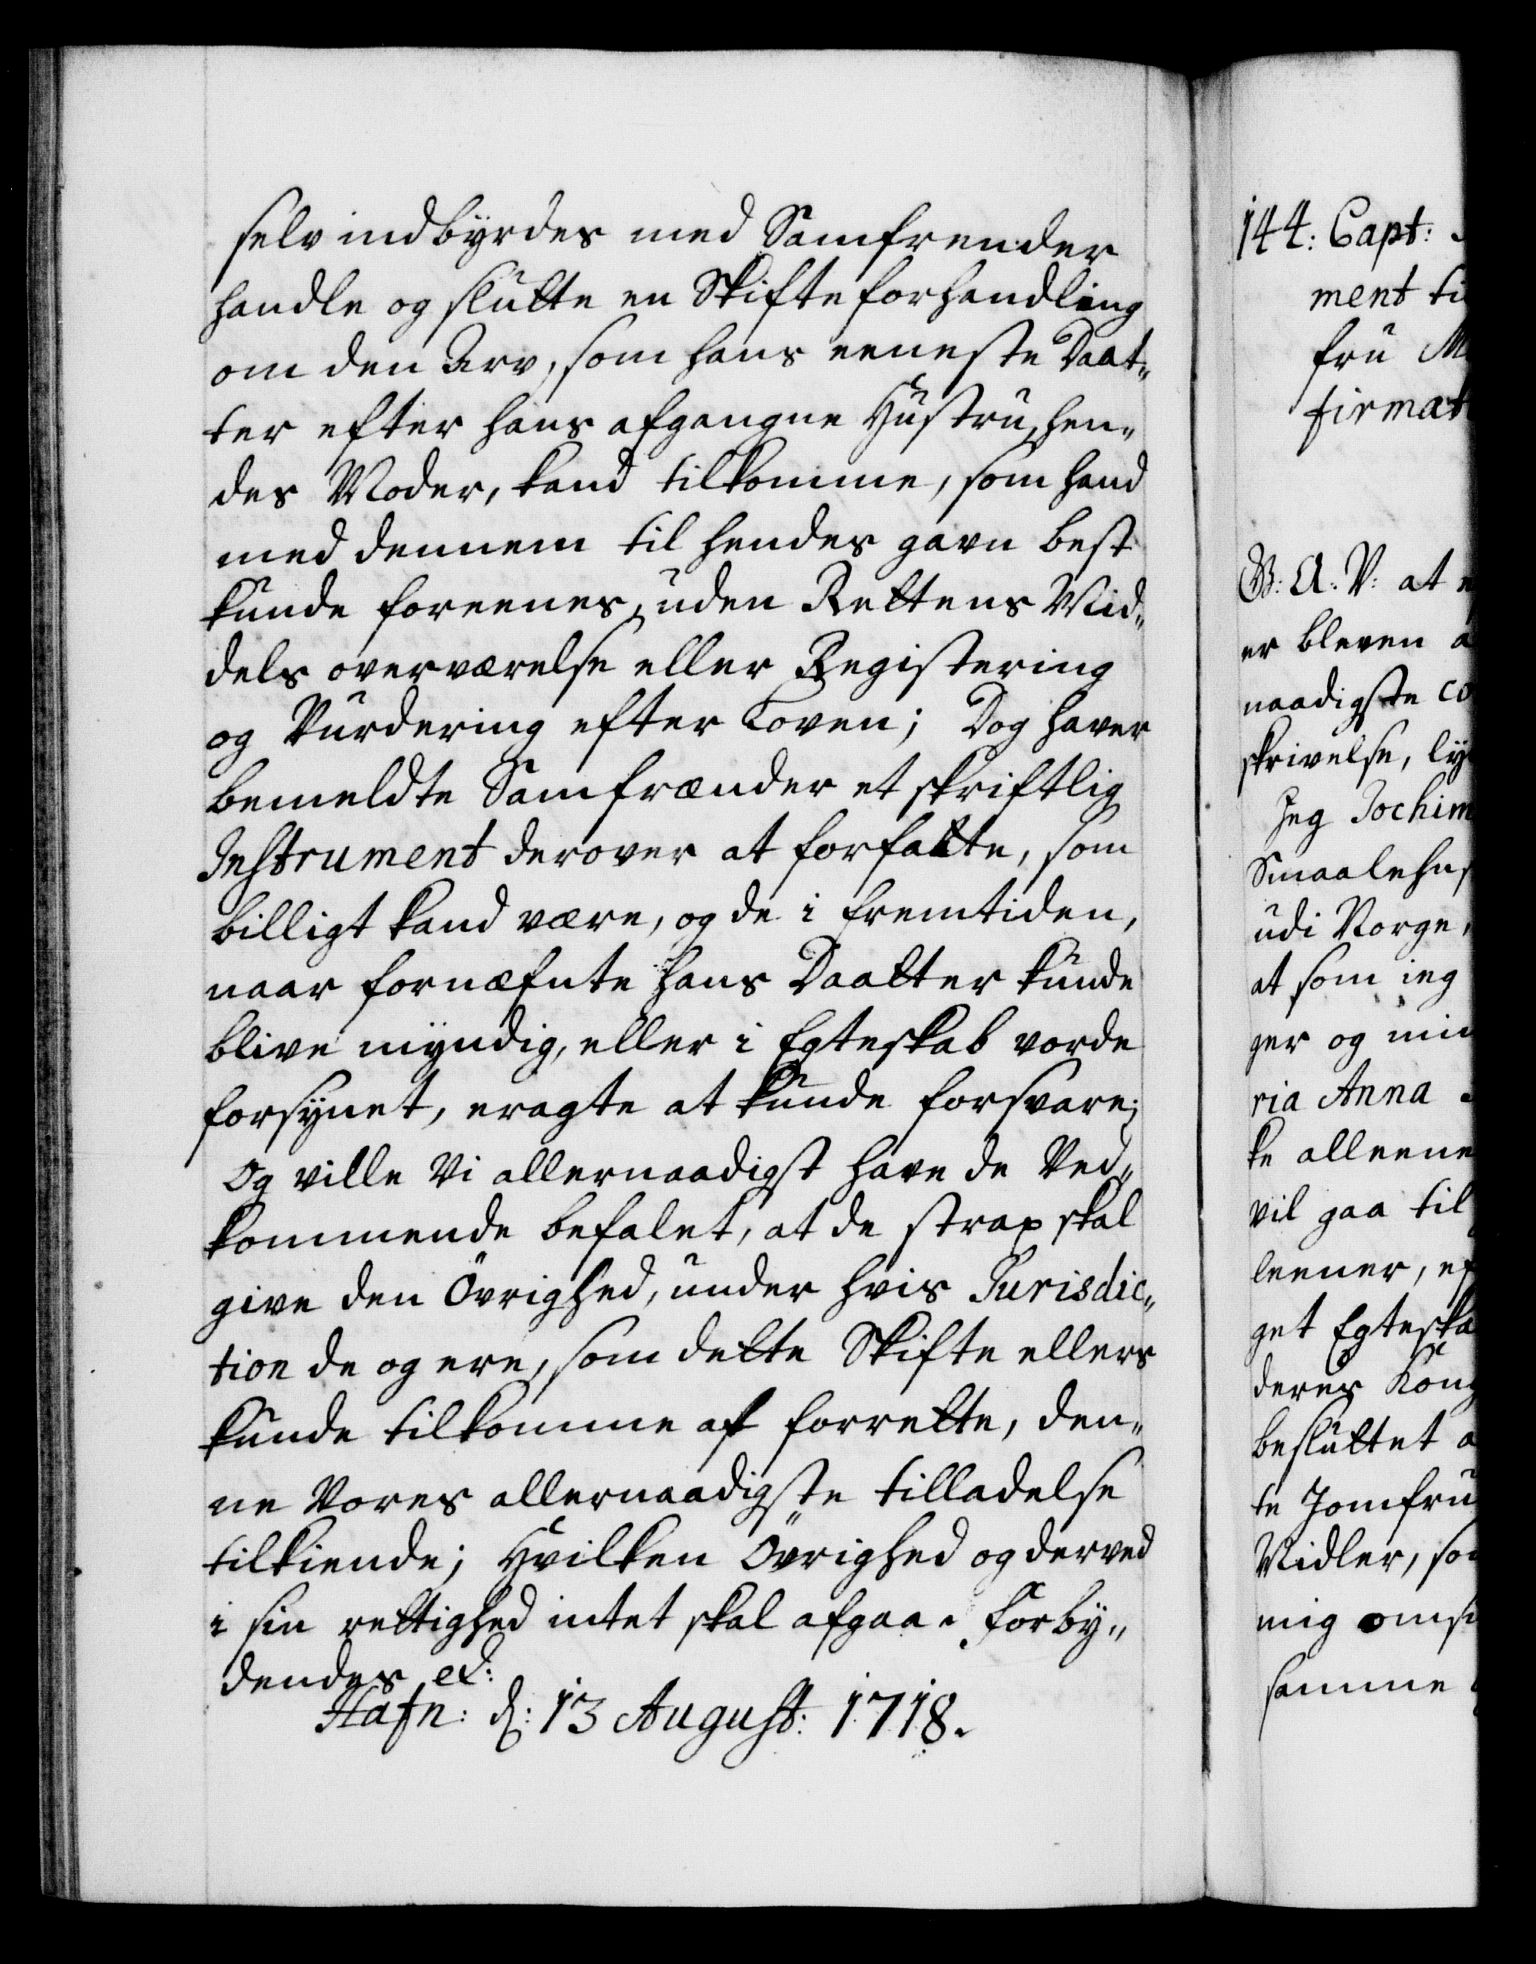 selv indbyrdes med Samfrender
handle og slutte en Skifteforhandling
om den Arv, som hans eeneste Daat„
ter efter hans afgangne Hustru, hen„
des Moder, kand tilkomme, som hand
med dennem til hendes gavn best
kunde foreenes, uden Rettens Mid„
dels overværelse eller Registering
og Vurdering efter Loven; Dog haver
bemeldte Samfrænder et skriftlig
Instrument derover at forfatte, som
billigt kand være, og de i fremtiden,
naar fornæfnte hans Daatter kunde
blive myndig, eller i Egteskab vorde
forsynet, eragte at kunde forsvare;
Og ville Vi allernaadigst have de Ved„
kommende befalet, at de strax skal
give den Övrighed, under hvis Jurisdic„
tion de og ere, som dette Skifte ellers
kunde tilkomme af forrette, den„
ne Vores allernaadigste tilladelse
tilkiende; Hvilken Övrighed og derved
i sin rettighed intet skal afgaa. Forby„
dendes et:
Hafn: d: 13 August: 1718.
144: Capt:
ment til
fru M
firmat
G: A: V: at e
er bleven a
naadigste co
skrivelse, ly
Jeg Jochim
Smaalehns
udi Norge,
at som ieg
ger og min
ria Anna
ke alleene
vil gaa til
leener, ef
get Egteska
deres Kong
besluttet a
te Jomfru
Midler, som
mig oms
samme